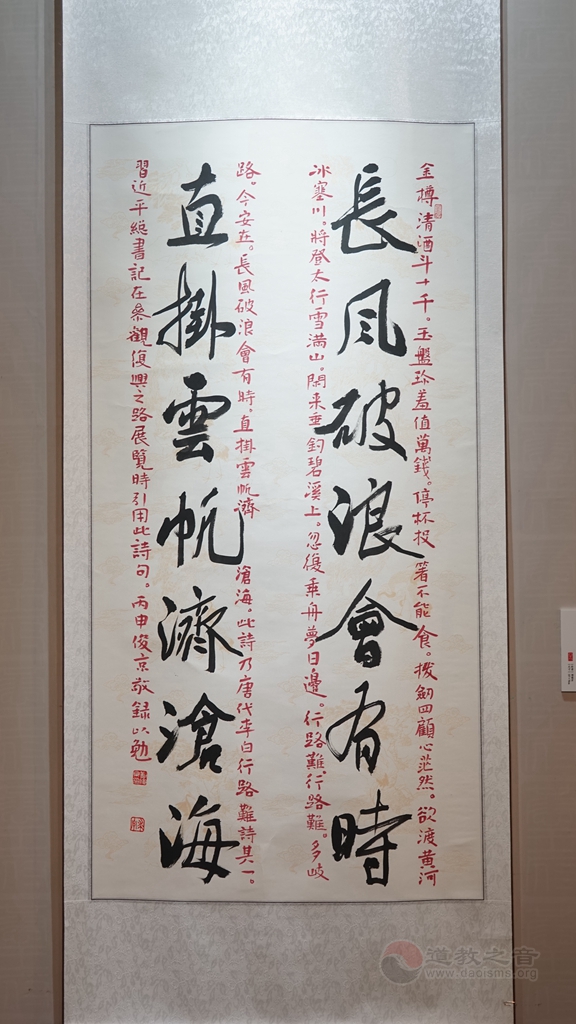 金樽清酒斗十千。玉盤珍羞值萬錢。停杯投箸不能食。拔劍四顧心茫然。欲渡黃河
長風破浪會有時
冰塞川。將登太行雪滿山。閑来垂釣碧溪上。忽復乘舟夢日邊。行路難行路難。多岐
路。今安在。長風破浪會有時。直掛雲帆濟滄海。此詩乃唐代李白行路難詩其一。
直掛雲帆濟滄海
習近平總書記在參觀復興之路展覽時引用此詩句。丙申俊京敬錄以勉
道教之音
www.daoisms.org